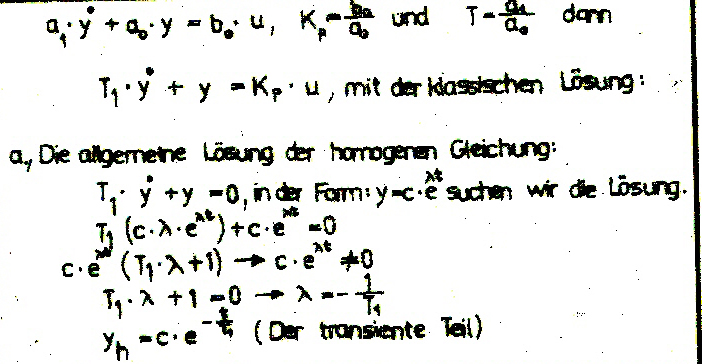 a₁·ẏ + a₀·y = b₀·u, Kₚ=b₀/a₀ und T=a₁/a₀ dann
T₁·ẏ + y = Kₚ·u, mit der klassischen Lösung:
a, Die allgemeine Lösung der homogenen Gleichung:
T₁·ẏ +y =0, in der Form: y=c·e^λt suchen wir die Lösung.
T₁(c·λ·e^λt)+c·e^λt =0
c·e^λt (T₁·λ+1) → c·e^λt ≠0
T₁·λ +1 =0 → λ=-1/T₁
yₕ =c·e^-t/T₁ (Der transiente Teil)